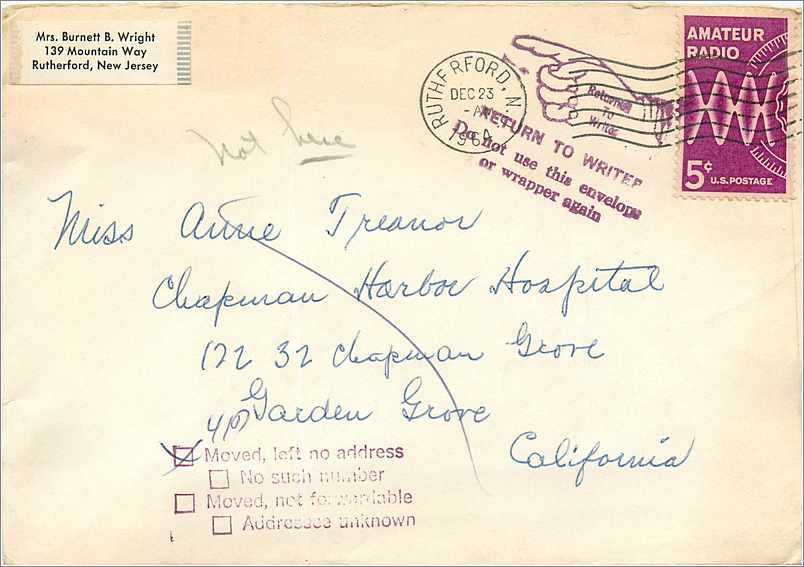 Mrs. Burnett B. Wright
139 Mountain Way
Rutherford, New Jersey
AMATEUR
RADIO
5¢ U.S. POSTAGE
RUTHERFORD, N.
DEC 23
196
Returned
To
Writer
RETURN TO WRITER
Do not use this envelope
or wrapper again
not here
Miss Anne Treanor
Chapman Harbor Hospital
122 32 Chapman Grove
Garden Grove
California
Moved, left no address
No such number
Moved, not forwardable
Addressee unknown